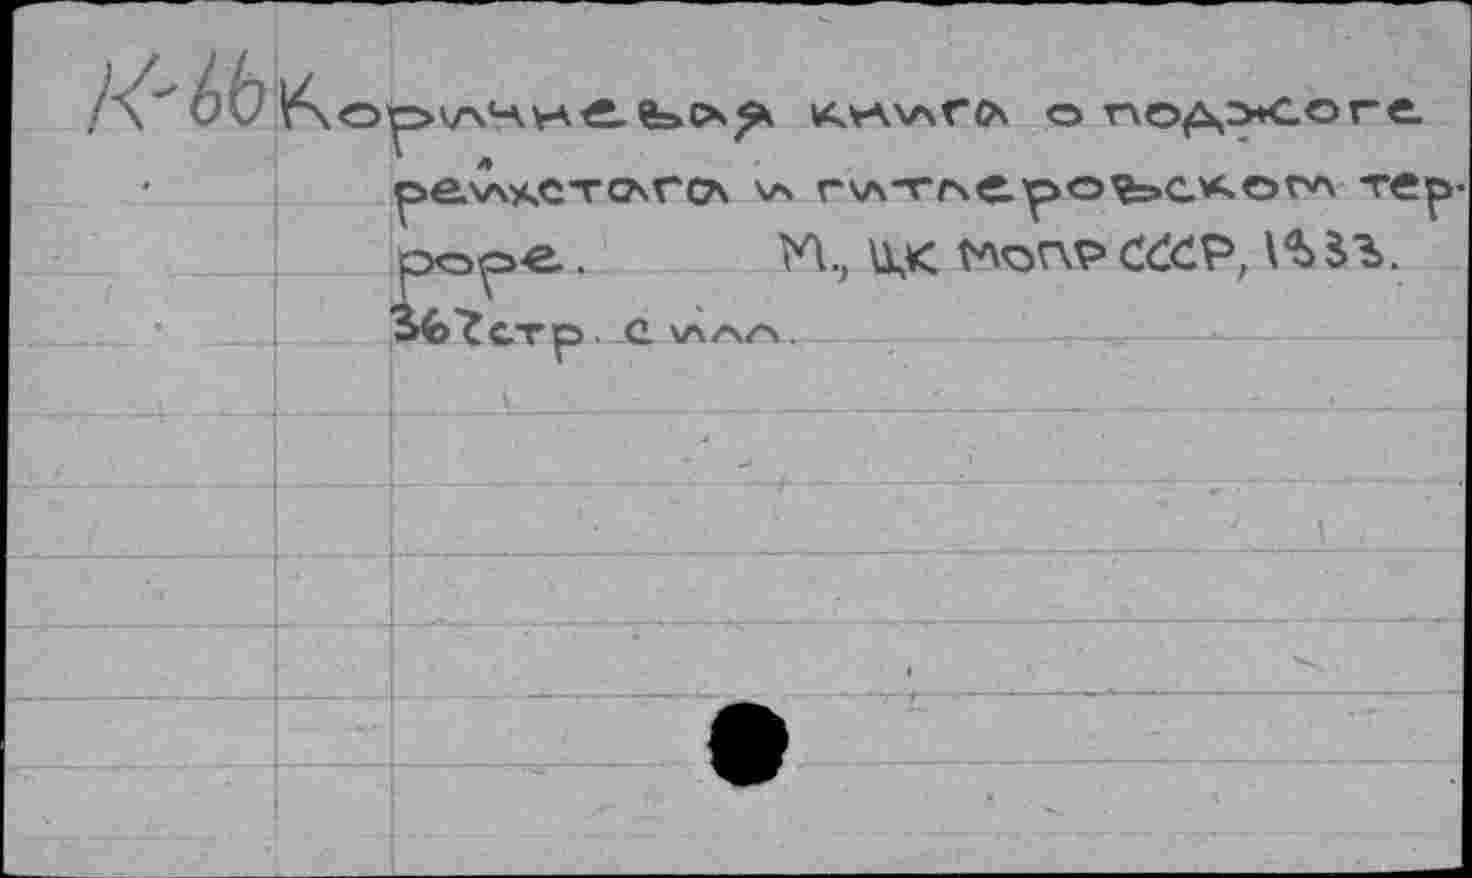 К-66 Коричневая книга о поджоге
рейхстага и гитлеровском тер-
роре. М., ЦК МОПР СССР, 1933.
367 стр. с илл.